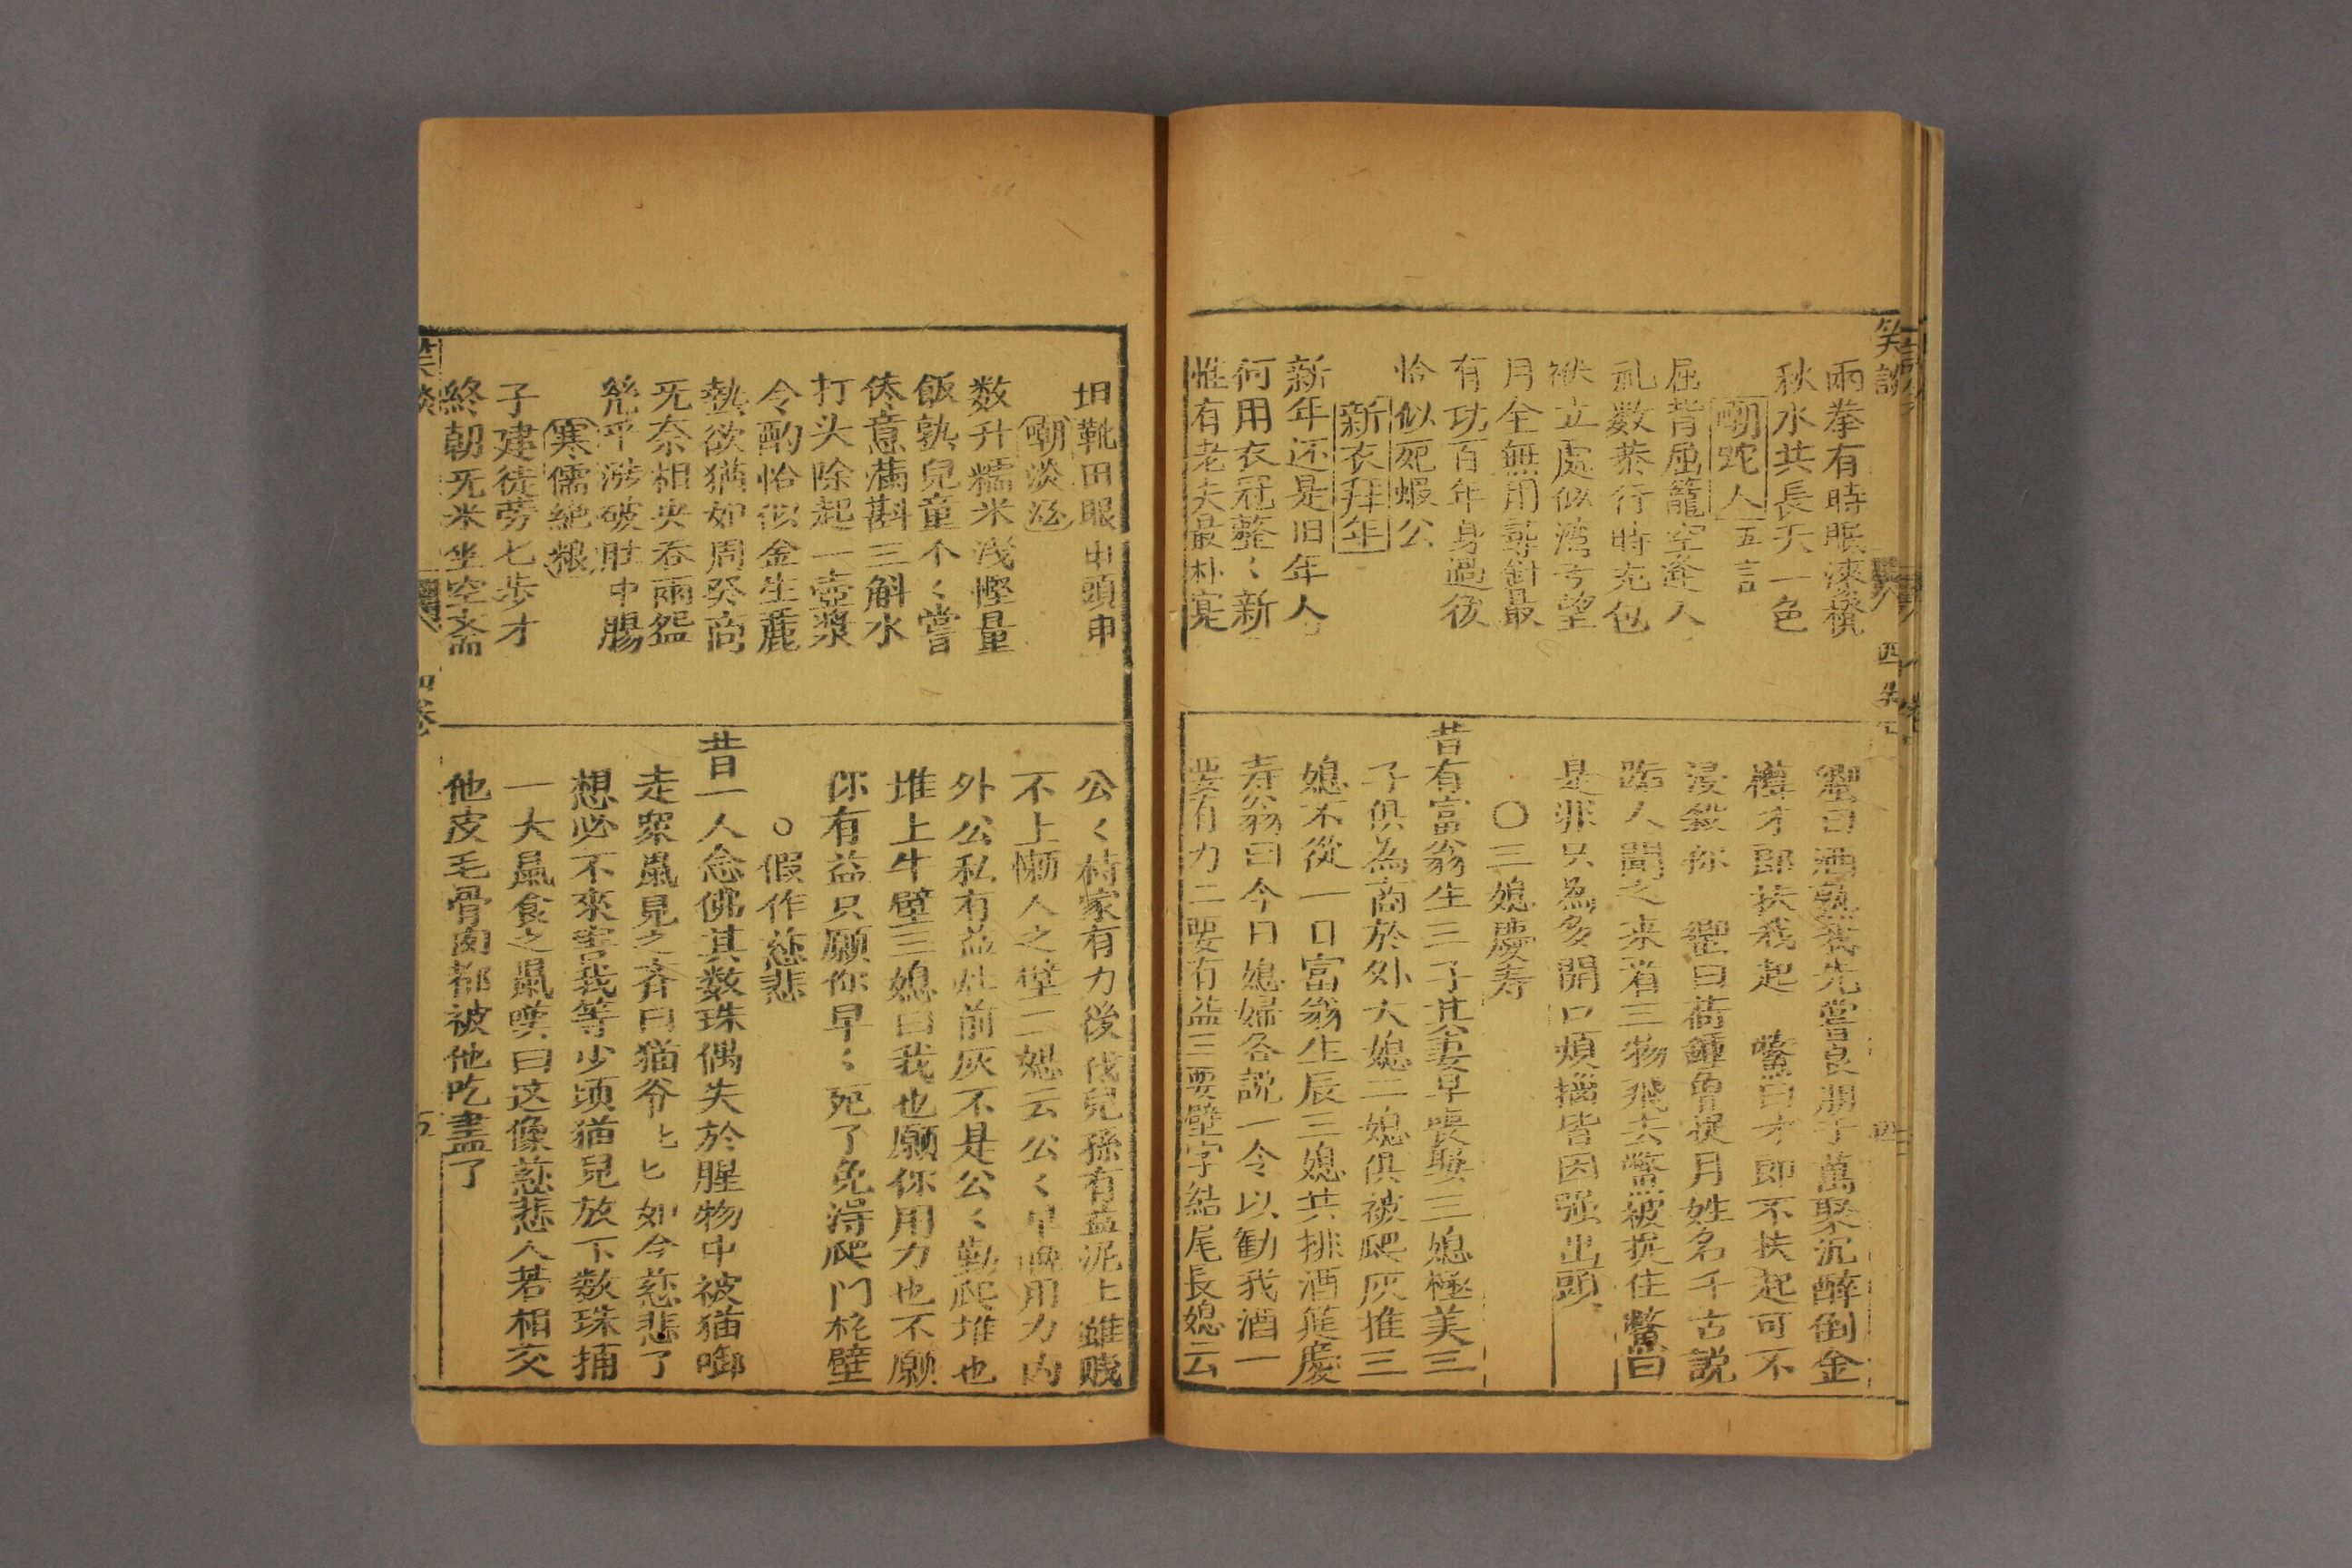 兩拳有時眠
秋水共長天一色
嘲蛇人五言
屈背屈籠空逢人
亂数恭行時充包
袱立處似湾弓望
月全無用尋針最
有功百年身過後
恰似死蝦公
新衣拜年
新年还是旧年人
何用衣冠整〻新
惟有老夫最朴寔
曰酒熟我先嘗良朋于萬聚沉醉倒金
樽才即扶我起 鱉曰才即不扶起可不
浸殺你 曰荷鍾魯捉月姓名千古説
人聞之来看三物飛去鱉被捉住鱉曰
是非只為多開口煩惱皆因强出頭
〇三媳慶寿
昔有富翁生三子其妻早喪娶三媳極美三
子俱為商於外大媳二媳俱被爬灰推三
媳不從一日富翁生辰三媳共排酒筵慶
寿翁曰今日媳婦各説一令以勸我酒一
要有力二要有益三要壁字結尾長媳云
坦靴田眼由頭申
嘲淡
数升糯米浅慳量
飯孰兒童个〻嘗
意满斟三斛水
打头除起一壺漿
令酌恰似金生麗
熱欲猶如周癸商
旡奈相央吞兩
乎漲破肚中腸
寒儒絶粮
子建徒旁七歩才
終朝旡米坐空斎
公〻村家有力後伐兒孫有益泥上雖賤
不上懶人之壁二媳云公〻早晚用力内
外公私有益灶前灰不是公〻勤爬堆也
堆上牛壁三媳曰我也願你用力也不願
你有益只願你早〻死了免淂爬门枆壁
〇假作慈悲
昔一人念佛其数珠偶失於腥物中被猫啣
走衆鼠見之斉曰猫爷匕匕如今慈悲了
想必不來害我等少顷猫兒放下数珠捕
一大鼠食之鼠嘆曰这像慈悲人若相交
他皮毛骨肉都被他吃盡了